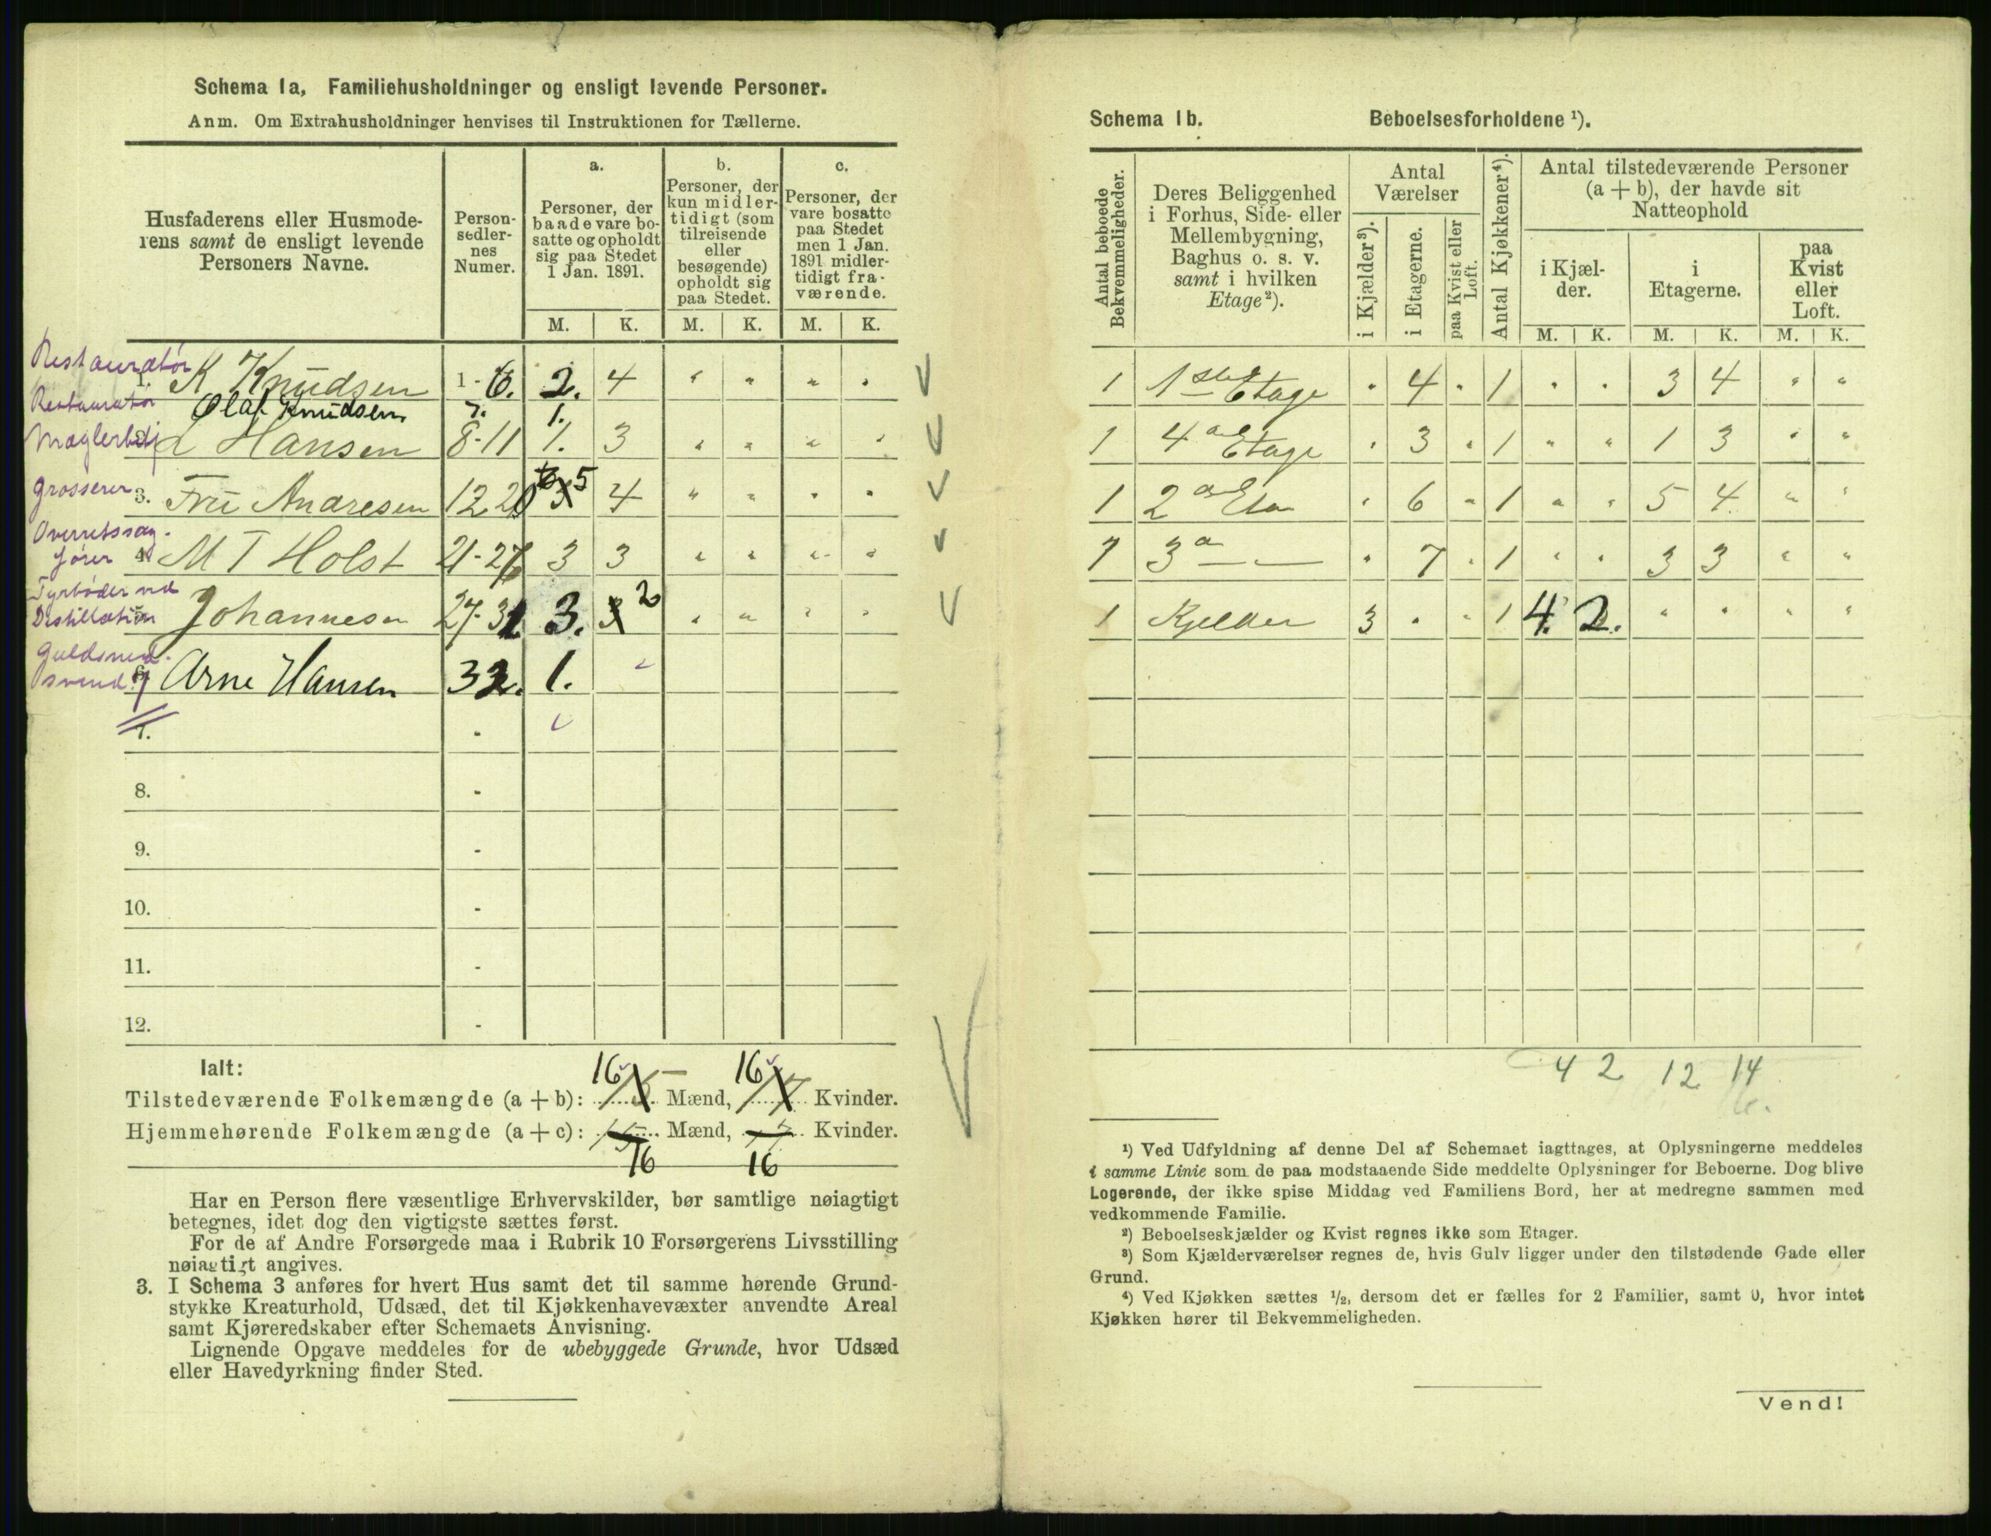 Schema 1a, Familiehusholdninger og ensligt levende Personer.
Anm. Om Extrahusholdninger henvises til Instruktionen for Tællerne.
Husfaderens eller Husmode-
rens samt de ensligt levende
Personers Navne.
Person-
sedler-
nes
Numer.
a.
Personer, der
baade vare bo-
satte og opholdt
sig paa Stedet
1 Jan. 1891.
b.
Personer, der
kun midler-
tidigt (som
tilreisende
eller
besøgende)
opholdt sig
paa Stedet.
c.
Personer, der
vare bosatte
paa Stedet
men 1 Jan.
1891 midler-
tidigt fra-
værende.
M. K. M. K. M. K.
Restauratør
1. K Knudsen 1-6. 2. 4 " " " "
Restauratør Olaf Knudsen 7. 1.
2. L Hansen 8-11 1. 3 " " " "
Grosserer 3. Fru Andresen 12 20 5 4 " " " "
Overretssag-
fører 4. M T Holst 21-26 3 3 " " " "
Fyrbøder ved
Distillation 5. Johannesen 27-31 3. 2 " " " "
Guldsmed-
svend 6. Arne Hansen 32. 1. "
7. -
8. -
9. -
10. -
11. -
12. -
Ialt:
16 16
Tilstedeværende Folkemængde (a + b): 15 Mænd, 17 Kvinder.
Hjemmehørende Folkemængde (a + c): 15 Mænd, 17 Kvinder.
16 16
Har en Person flere væsentlige Erhvervskilder, bør samtlige nøiagtigt
betegnes, idet dog den vigtigste sættes først.
For de af Andre Forsørgede maa i Rubrik 10 Forsørgerens Livsstilling
nøiagtigt angives.
3. I Schema 3 anføres for hvert Hus samt det til samme hørende Grund-
stykke Kreaturhold, Udsæd, det til Kjøkkenhavevæxter anvendte Areal
samt Kjøreredskaber efter Schemaets Anvisning.
Lignende Opgave meddeles for de ubebyggede Grunde, hvor Udsæd
eller Havedyrkning finder Sted.
Schema 1b. Beboelsesforholdene ¹).
Antal beboede
Bekvemmeligheder.
Deres Beliggenhed
i Forhus, Side- eller
Mellembygning,
Baghus o. s. v.
samt i hvilken
Etage²).
Antal
Værelser
i Kjælder³).
i Etagerne.
paa Kvist eller
Loft.
Antal Kjøkkener⁴).
Antal tilstedeværende Personer
(a + b), der havde sit
Natteophold
i Kjæl-
der.
i
Etagerne.
paa
Kvist
eller
Loft.
M. K. M. K. M. K.
1 1ste Etage " 4 " 1 " " 3 4 " "
1 4de Etage " 3 " 1 " " 1 3 " "
1 2den Eta " 6 " 1 " " 5 4 " "
1 3 — — " 7 " 1 " " 3 3 " "
1 Kjelder 3 " " 1 4. 2. " " " "
4 2 12 14
16.
¹) Ved Udfyldning af denne Del af Schemaet iagttages, at Oplysningerne meddeles
i samme Linie som de paa modstaaende Side meddelte Oplysninger for Beboerne. Dog blive
Logerende, der ikke spise Middag ved Familiens Bord, her at medregne sammen med
vedkommende Familie.
²) Beboelseskjælder og Kvist regnes ikke som Etager.
³) Som Kjælderværelser regnes de, hvis Gulv ligger under den tilstødende Gade eller
Grund.
⁴) Ved Kjøkken sættes ½, dersom det er fælles for 2 Familier, samt 0, hvor intet
Kjøkken hører til Bekvemmeligheden.
Vend!